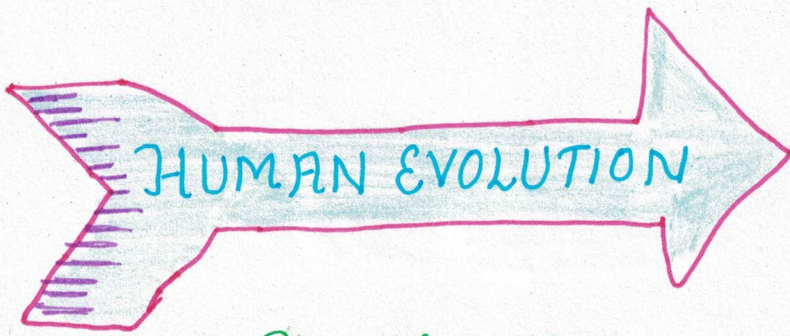 HUMAN EVOLUTION